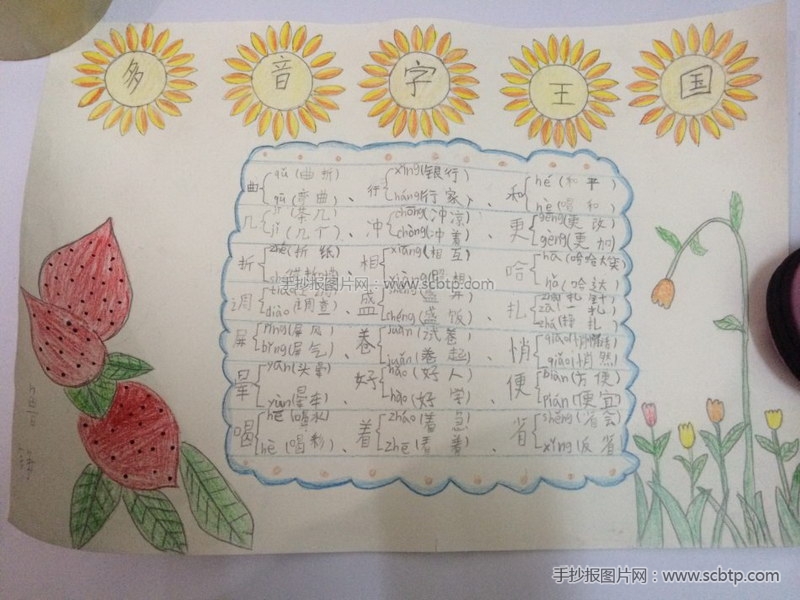 多 音 字 王 国
曲 qū(曲折 行 xíng(银行) 和 hé(和平)
qū(弯曲) háng(行家) hè(唱和)
几 jī(茶几 冲 chōng(冲凉) 更 gēng(更改
jǐ(几个) chòng(冲着) gèng(更加)
折 折纸) 相 xiāng(相互 哈 hā(哈哈大笑
手抄报图片网:www.scbtp.com
hǎ(哈达)
调 盛 扎
diào(调查) chéng(盛饭) 扎)
屏 píng(屏风) 卷 juàn(试卷) 悄
bǐng(屏气) juǎn(卷起) qiǎo(悄然)
晕 yūn(头晕) 好 hǎo(好人) 便 biàn(方便
yùn(晕车) hào(好学) pián(便宜
喝 hē(喝水 着 zháo(着急 省 shěng(省会
hè(喝彩) zhe(看着) xǐng(反省
手抄报图片网:www.scbtp.com